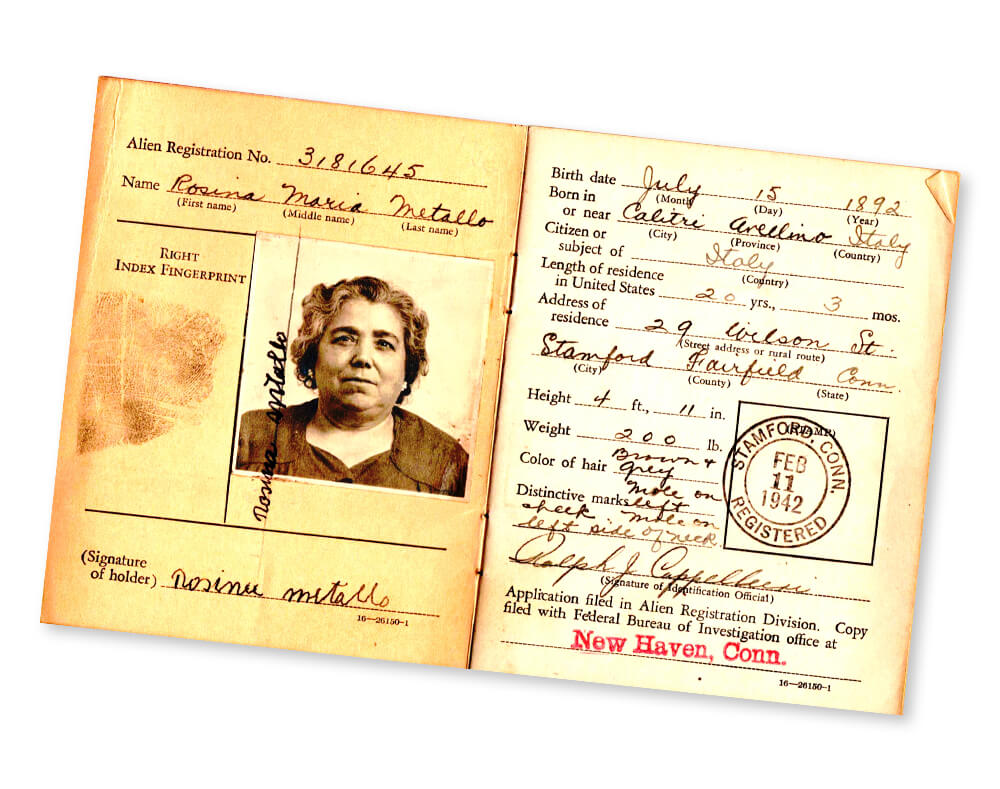 Alien Registration No. 3181645
Name Rosina Maria Metallo
(First name) (Middle name) (Last name)
RIGHT
INDEX FINGERPRINT
Rosina Metallo
(Signature
of holder) Rosina metallo
16—26150-1
Birth date July 15 1892
(Month) (Day) (Year)
Born in
or near Calitri Avellino Italy
(City) (Province) (Country)
Citizen or
subject of Italy
(Country)
Length of residence
in United States 20 yrs., 3 mos.
Address of
residence 29 Wilson St.
(Street address or rural route)
Stamford Fairfield Conn.
(City) (County) (State)
Height 4 ft., 11 in.
Weight 200 lb.
Color of hair Brown + grey
Distinctive marks Mole on
left
cheek mole on
left side of neck.
(STAMP)
STAMFORD, CONN.
FEB
11
1942
REGISTERED
Ralph J.
(Signature of Identification Official)
Application filed in Alien Registration Division. Copy
filed with Federal Bureau of Investigation office at
New Haven, Conn.
16—26150-1